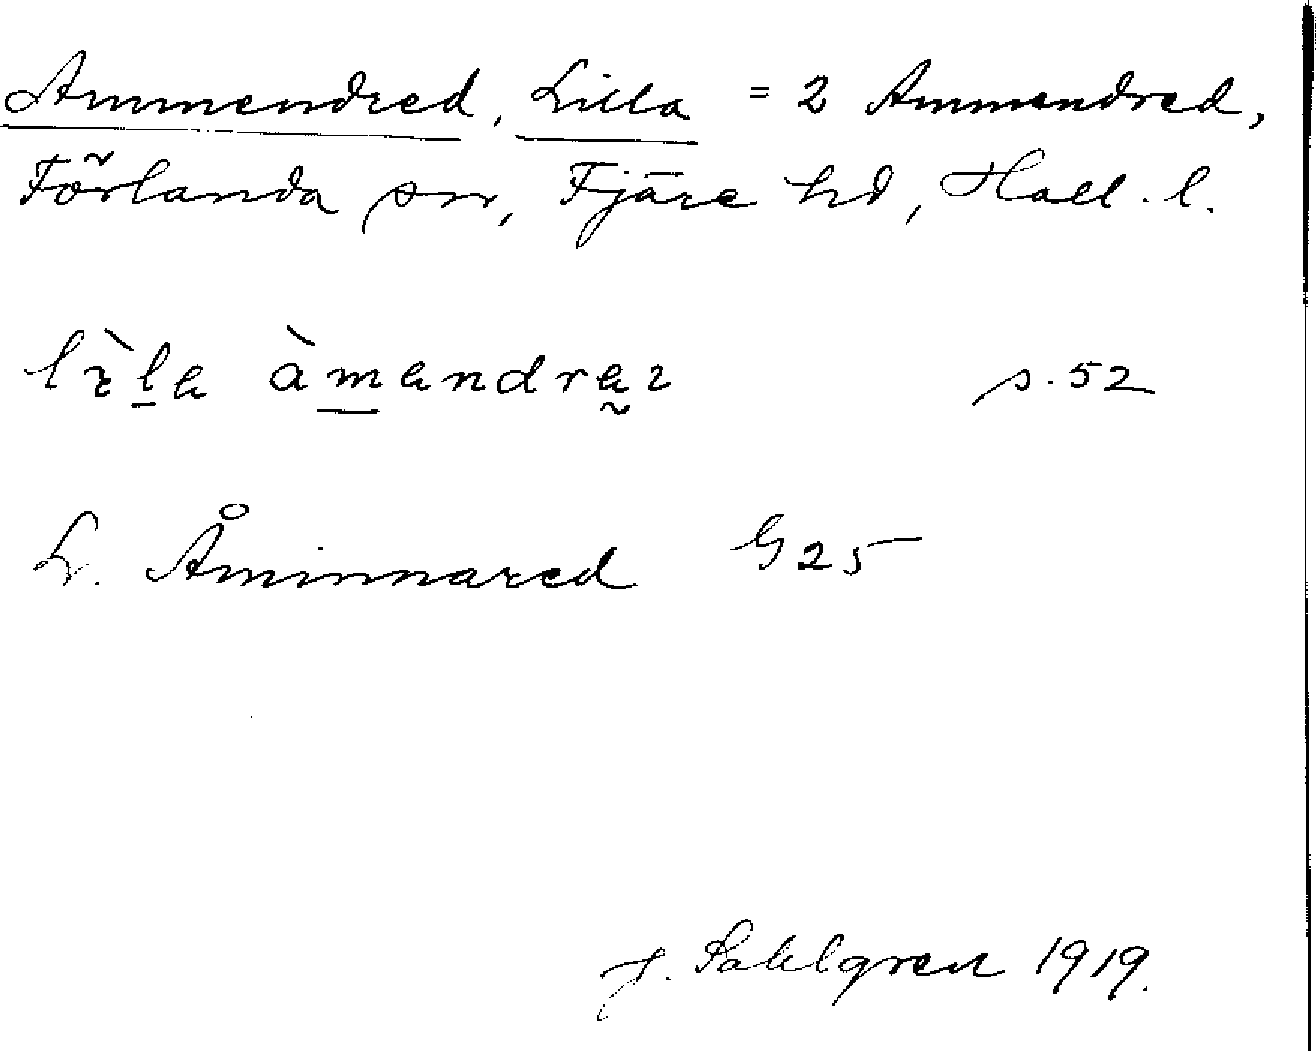 Ammendred, Lilla = 2 Ammendred,
Förlanda sn, Fjäre hd, Hall. l.
lìla àmandrar s. 52
L. Åminnared G25
J. Sahlgren 1919.